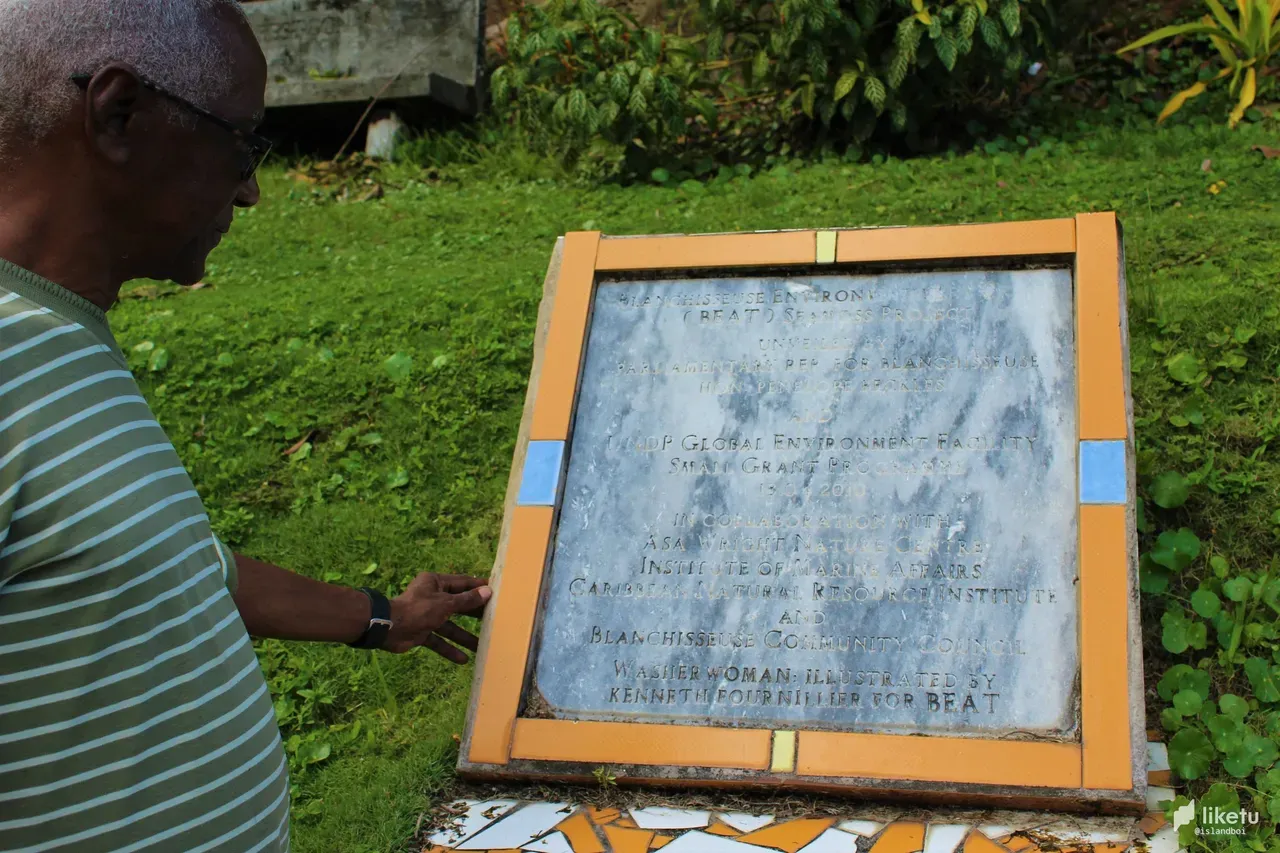 BLANCHISSEUSE ENVIRONM
(BEAT) SEAMOSS PROJECT
UNVEILED BY
PARLIAMENTARY REP. FOR BLANCHISSEUSE
HON. PENELOPE BECKLES
AND
GLOBAL ENVIRONMENT FACILITY
SMALL GRANT PROGRAMME
IN COLLABORATION WITH
ASA WRIGHT NATURE CENTRE
INSTITUTE OF MARINE AFFAIRS
CARIBBEAN NATURAL RESOURCE INSTITUTE
AND
BLANCHISSEUSE COMMUNITY COUNCIL
WASHERWOMAN: ILLUSTRATED BY
KENNETH FOURNILLIER FOR BEAT
liketu
@islandboi